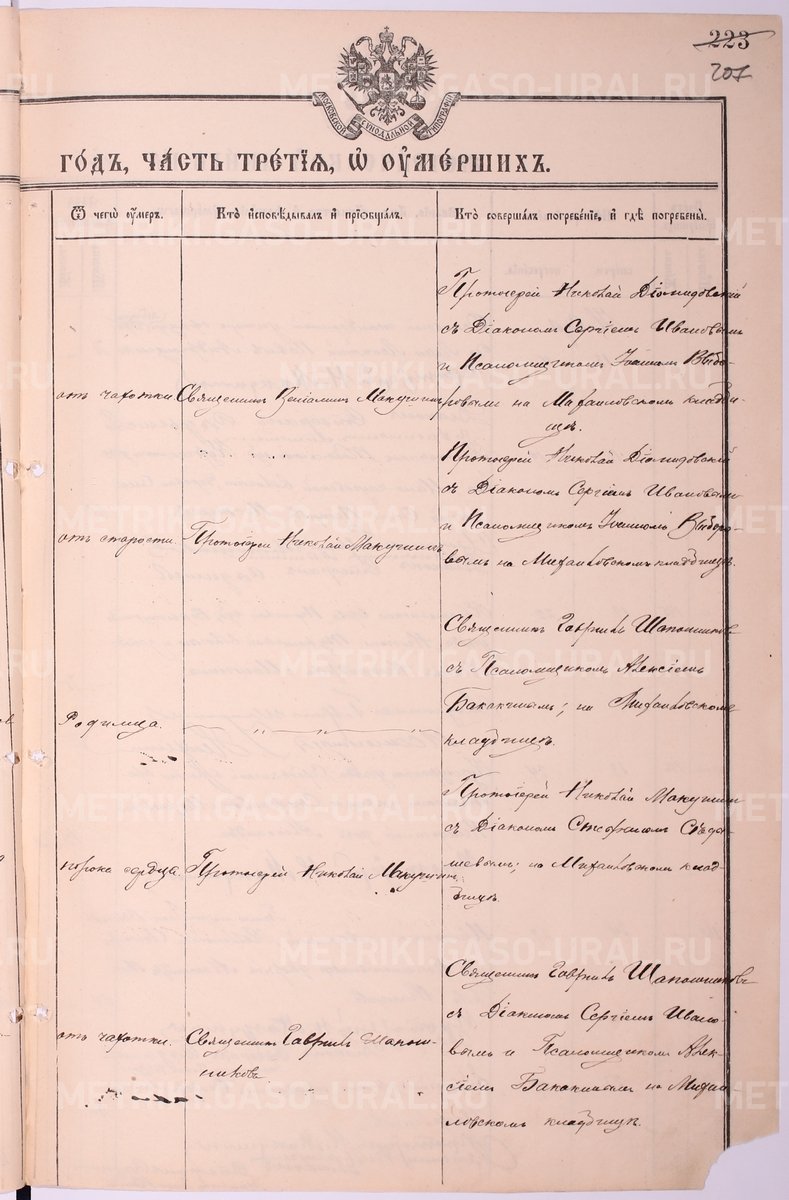 223
207
МОСКОВСКОЙ СѴНОДАЛЬНОЙ ТИПОГРАФІИ
ГОДЪ, ЧАСТЬ ТРЕТІЯ, Ѡ ОУМЕРШИХЪ.
Ѿ чегѡ оумеръ.
Кто исповѣдывалъ и пріобщалъ.
Кто совершалъ погребеніе, и гдѣ погребены.
отъ чахотки
Священникъ Веніаминъ Макушинъ
Протоіерей Николай Діомидовскій
съ Діакономъ Сергіемъ Ивановымъ
и Псаломщикомъ Іоанномъ Выбо-
ровымъ на Михайловскомъ кладби-
щѣ.
отъ старости.
Протоіерей Николай Макушинъ
Протоіерей Николай Діомидовскій
съ Діакономъ Сергіемъ Ивановымъ
и Псаломщикомъ Іоанномъ Выборо-
вымъ на Михайловскомъ кладбищѣ.
Родимца.
Священникъ Гавріилъ Шапошников
съ Псаломщикомъ Алексіемъ
на Михайловскомъ
кладбищѣ.
порока сердца.
Протоіерей Николай Макушинъ.
Протоіерей Николай Макушин
съ Діакономъ Стефаномъ
на Михайловскомъ клад-
бищѣ.
отъ чахотки.
Священникъ Гавріилъ Шапош-
никовъ
Священникъ Гавріилъ Шапошниковъ
съ Діакономъ Сергіемъ Ивано-
вымъ и Псаломщикомъ Алек-
сіемъ на Михай-
ловскомъ кладбищѣ.
METRIKI.GASO-URAL.RU